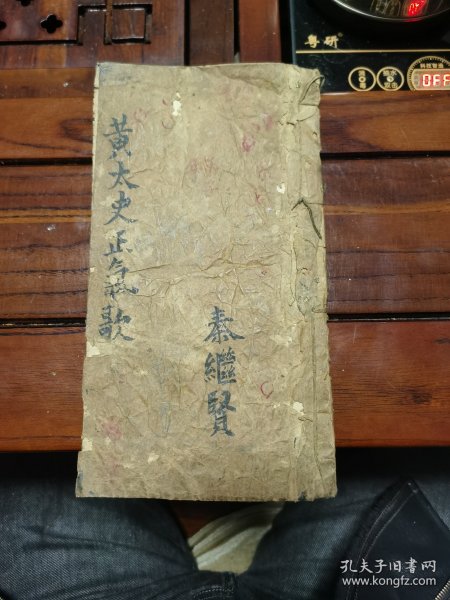 黄太史正气歌
秦繼賢
粤研
OFF
孔夫子旧书网
www.kongfz.com